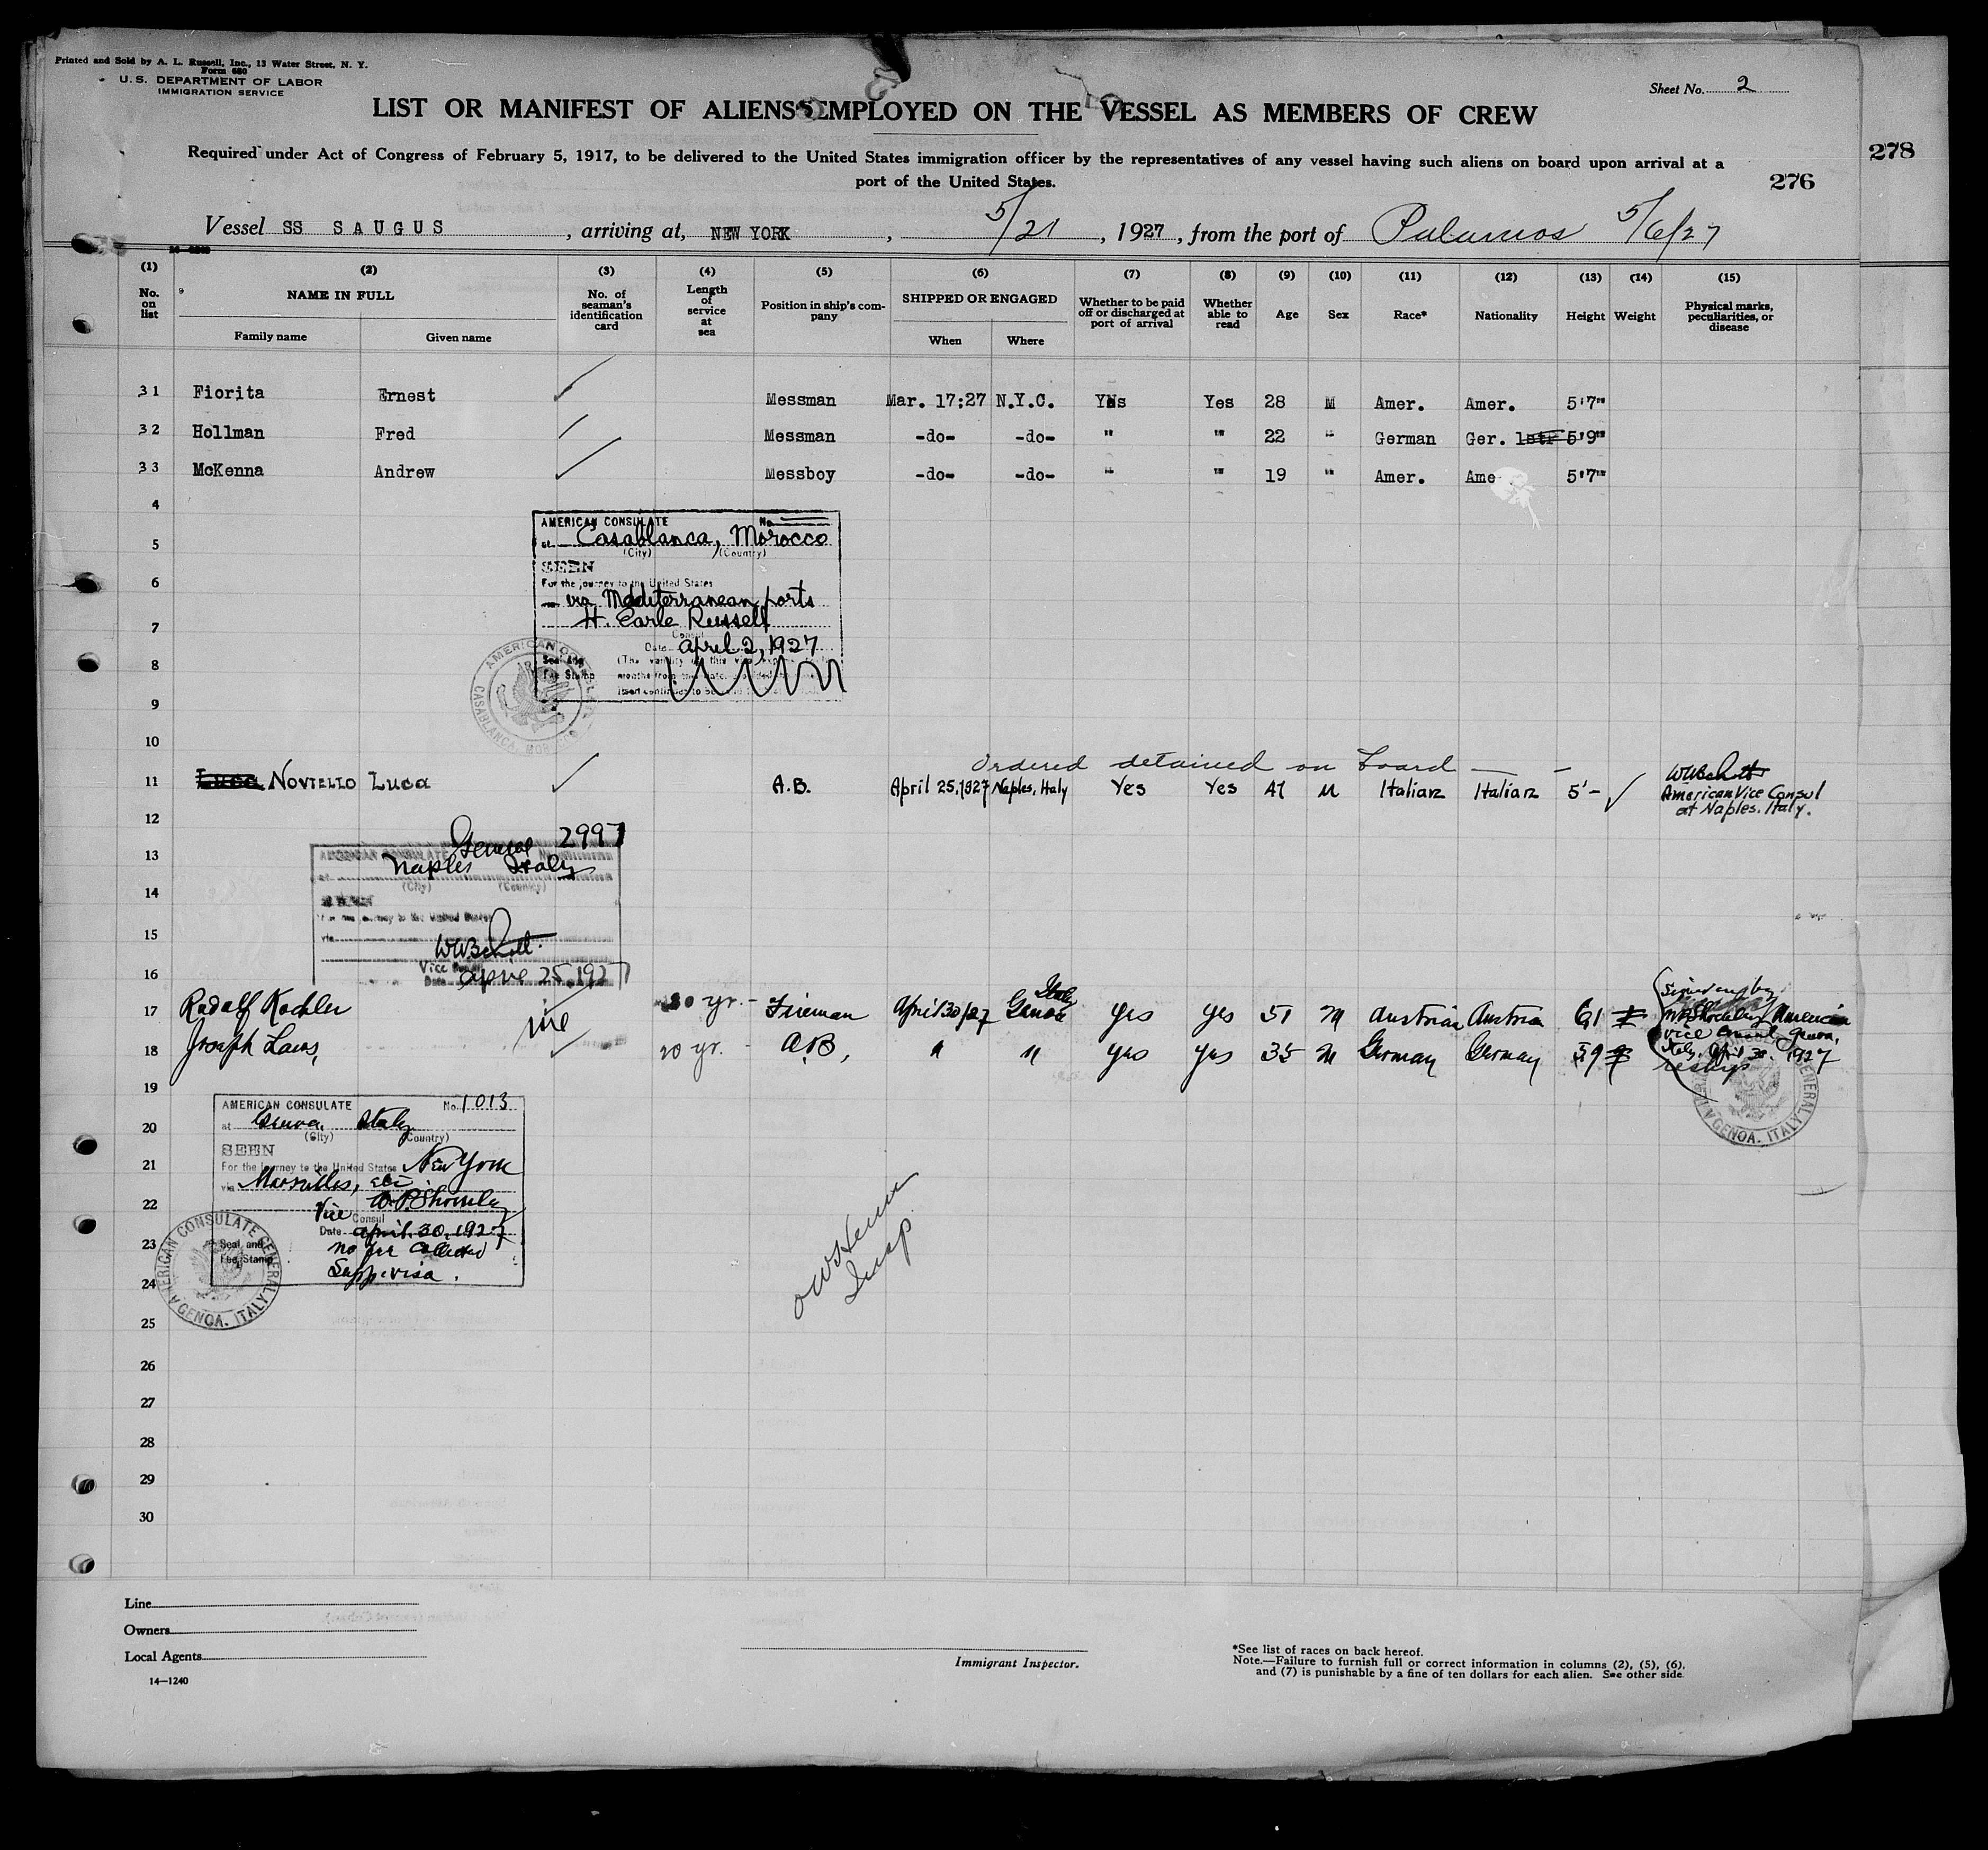 Printed and Sold by A. L. Russell, Inc., 13 Water Street, N. Y.
Form 680
U. S. DEPARTMENT OF LABOR
IMMIGRATION SERVICE
Sheet No. 2
LIST OR MANIFEST OF ALIENS EMPLOYED ON THE VESSEL AS MEMBERS OF CREW
Required under Act of Congress of February 5, 1917, to be delivered to the United States immigration officer by the representatives of any vessel having such aliens on board upon arrival at a
port of the United States.
278
276
Vessel SS SAUGUS, arriving at, NEW YORK, 5/21, 1927, from the port of Palamos 5/6/27
(1) (2) (3) (4) (5) (6) (7) (8) (9) (10) (11) (12) (13) (14) (15)
No. on list NAME IN FULL Family name Given name No. of seaman's identification card Length of service at sea Position in ship's company SHIPPED OR ENGAGED When Where Whether to be paid off or discharged at port of arrival Whether able to read Age Sex Race* Nationality Height Weight Physical marks, peculiarities, or disease
31 Fiorita Ernest Messman Mar. 17:27 N.Y.C. Yes Yes 28 M Amer. Amer. 5'7"
32 Hollman Fred Messman -do- -do- " " 22 " German Ger. 5'9"
33 McKenna Andrew Messboy -do- -do- " " 19 " Amer. Ame 5'7"
4
AMERICAN CONSULATE No.
5
at Casablanca, Morocco
(City) (Country)
SEEN
6
For the journey to the United States
via Mediterranean ports
H. Earle Russell
7
Consul
Date April 2, 1927
8
Seal and
Fee Stamp
AMERICAN CONSULATE CASABLANCA, MOROCCO
9
10
Ordered detained on board
11 Luca NOVIELLO Luca A.B. April 25, 1927 Naples, Italy Yes Yes 47 M Italian Italian 5'-
WWSchott
American Vice Consul
at Naples, Italy.
12
General 2997
13
AMERICAN CONSULATE
Naples Italy
(City) (Country)
14
For the journey to the United States
15
via
WWSchott
Vice Consul
16
Date April 25, 1927
17 Rudolf Kochler 20 yr. - Fireman April 30/27 Genoa Italy yes yes 51 M Austrian Austria 6 1
18 Joseph Laws, 20 yr. - A.B, " " yes yes 35 M German Germany 5 9
Signed by
American
Vice Consul Genoa,
Italy. April 30, 1927
19
AMERICAN CONSULATE No. 1013
20
at Genoa, Italy
(City) (Country)
SEEN
21
For the journey to the United States New York
via Marseilles, etc
22
W.P. Shockley
Vice Consul
Date April 30, 1927
23
Seal and
Fee Stamp
no fee collected
Supp. visa.
24
AMERICAN CONSULATE GENERAL GENOA, ITALY
GENERAL GENOA, ITALY
Insp
25
26
27
28
29
30
Line
Owners
Local Agents
14—1240
Immigrant Inspector.
*See list of races on back hereof.
Note.—Failure to furnish full or correct information in columns (2), (5), (6),
and (7) is punishable by a fine of ten dollars for each alien. See other side